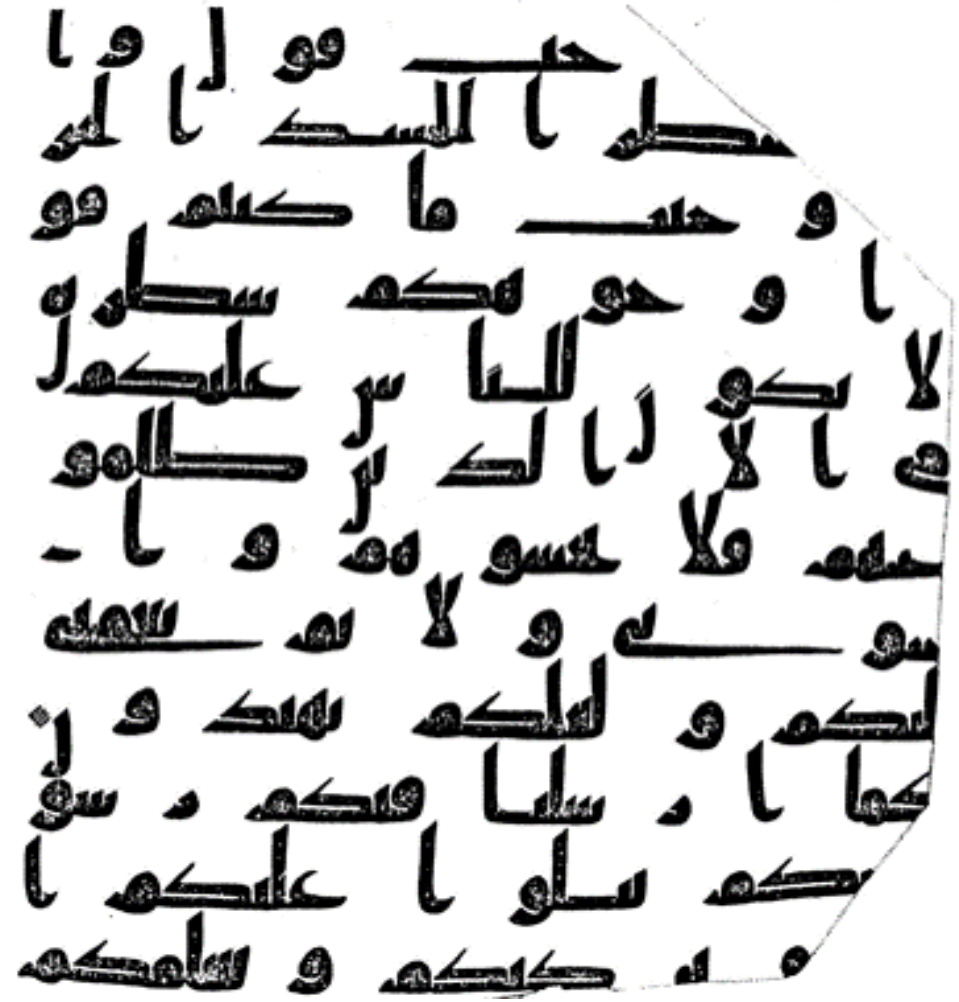 حيث فول و ا
شطر ا لمسجد ا لحر
و حيث ما كنتم فو
ا و جو هكم شطر ه
لا يكو ن للنا س عليكم
ا لا ا لذ ين ظلمو
منهم فلا تخشو هم و ا
شو ني و لا تم نعمتي
عليكم و لعلكم تهتد و ن
كما ا ر سلنا فيكم ر سو
منكم يتلو ا عليكم ا
و يزكيكم و يعلمكم